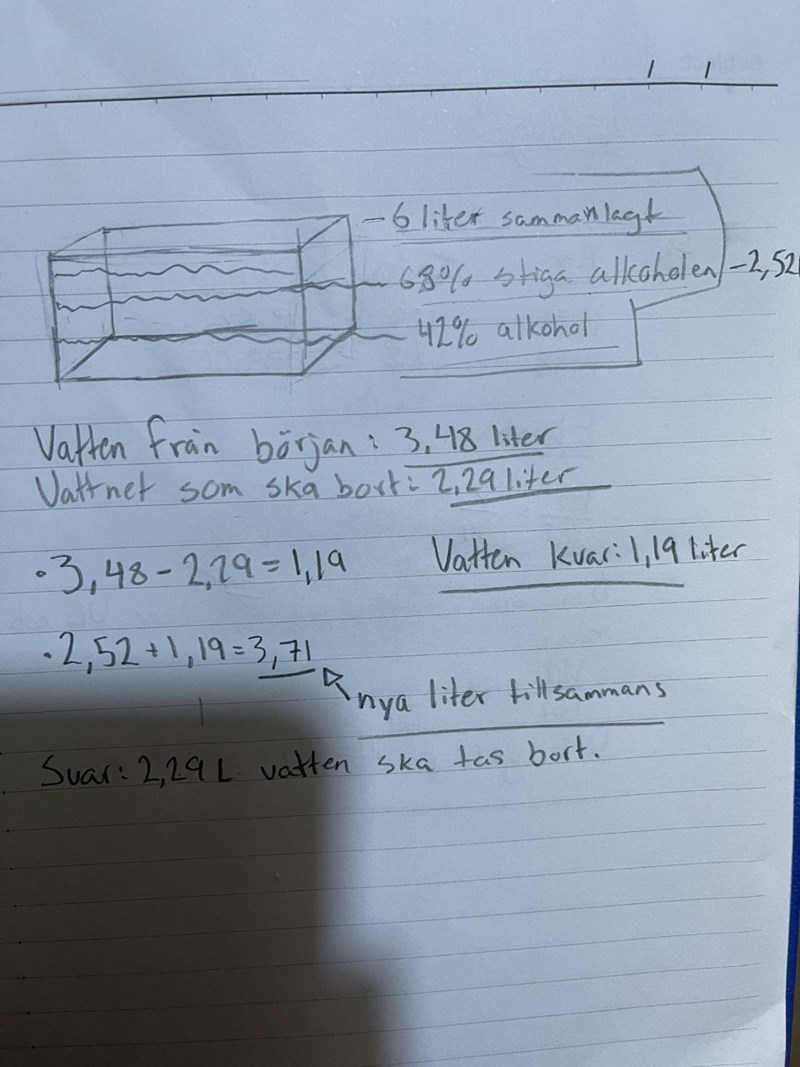 - 6 liter sammanlagt
68% stiga alkoholen
-2,52l
42% alkohol
Vatten från början: 3,48 liter
Vattnet som ska bort: 2,29 liter
• 3,48 - 2,29 = 1,19 Vatten kvar: 1,19 liter
• 2,52 + 1,19 = 3,71
nya liter tillsammans
Svar: 2,29 L vatten ska tas bort.